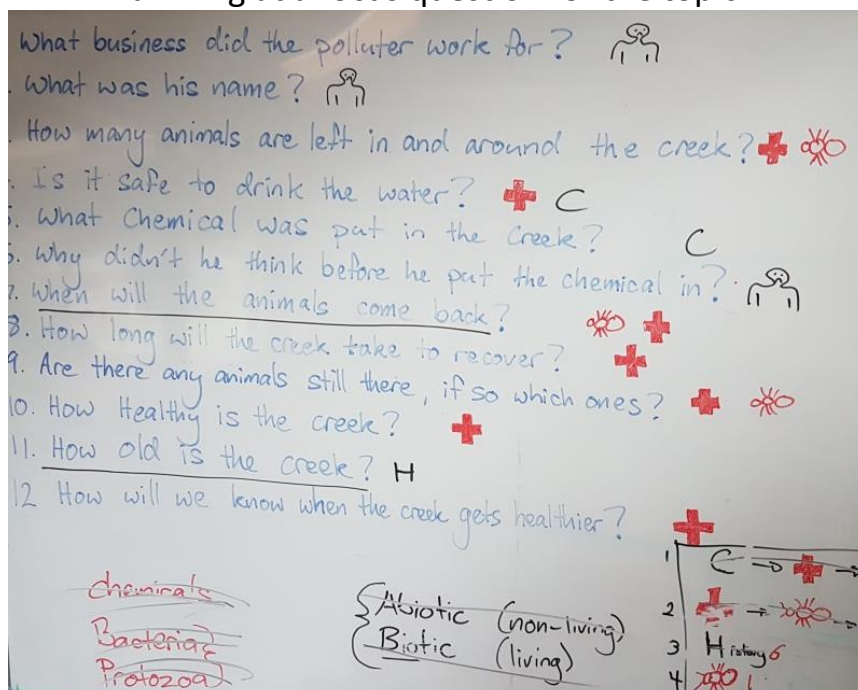 What business did the polluter work for?
What was his name?
How many animals are left in and around the creek?
Is it safe to drink the water? C
5. What Chemical was put in the Creek? C
6. Why didn't he think before he put the chemical in?
7. When will the animals come back?
8. How long will the creek take to recover?
9. Are there any animals still there, if so which ones?
10. How Healthy is the creek?
11. How old is the creek? H
12 How will we know when the creek gets healthier?
1 C → →
Chemicals
Abiotic (non-living)
2 → →
Bacteria
Biotic (living)
3 History 6
Protozoa
4 1